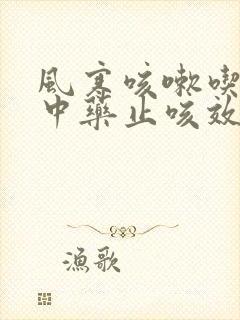 風寒咳嗽喫
中藥止咳效
漁歌